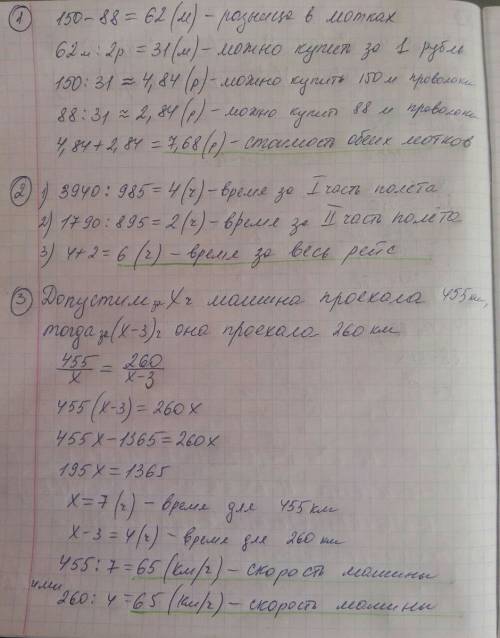 ① 150-88=62(м)-розница в мотках
62м:2р=31(м)-можно купить за 1 рубль
150:31≈4,84(р)-можно купить 150м проволоки
88:31≈2,84(р)-можно купить 88 м проволоки
4,84+2,84=7,68(р)-стоимость обеих мотков
② 1) 3940:985=4(ч)-време за I часть полёта
2) 1790:895=2(ч)-време за II часть полёта
3) 4+2=6(ч)-време за весь рейс
③ Допустим за Xч машина проехала 455км,
тогда за(X-3)ч она проехала 260км
455/X=260/X-3
455(X-3)=260X
455X-1365=260X
195X=1365
X=7(ч)-време для 455км
X-3=4(ч)-време для 260км
455:7=65(км/ч)-скорость машины
или
260:4=65(км/ч)-скорость машины